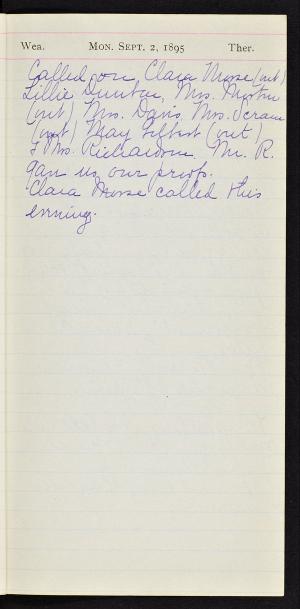 Wea. MON. SEPT. 2, 1895 Ther.
Called on Clara Morse (out)
Lillie Dunton, Mrs. Morton
(out) Mrs. Davis, Mrs.
(out) May Gilbert (out)
& Mrs. Richardson. Mr. R.
gave us our proofs.
Clara Morse called this
evening.